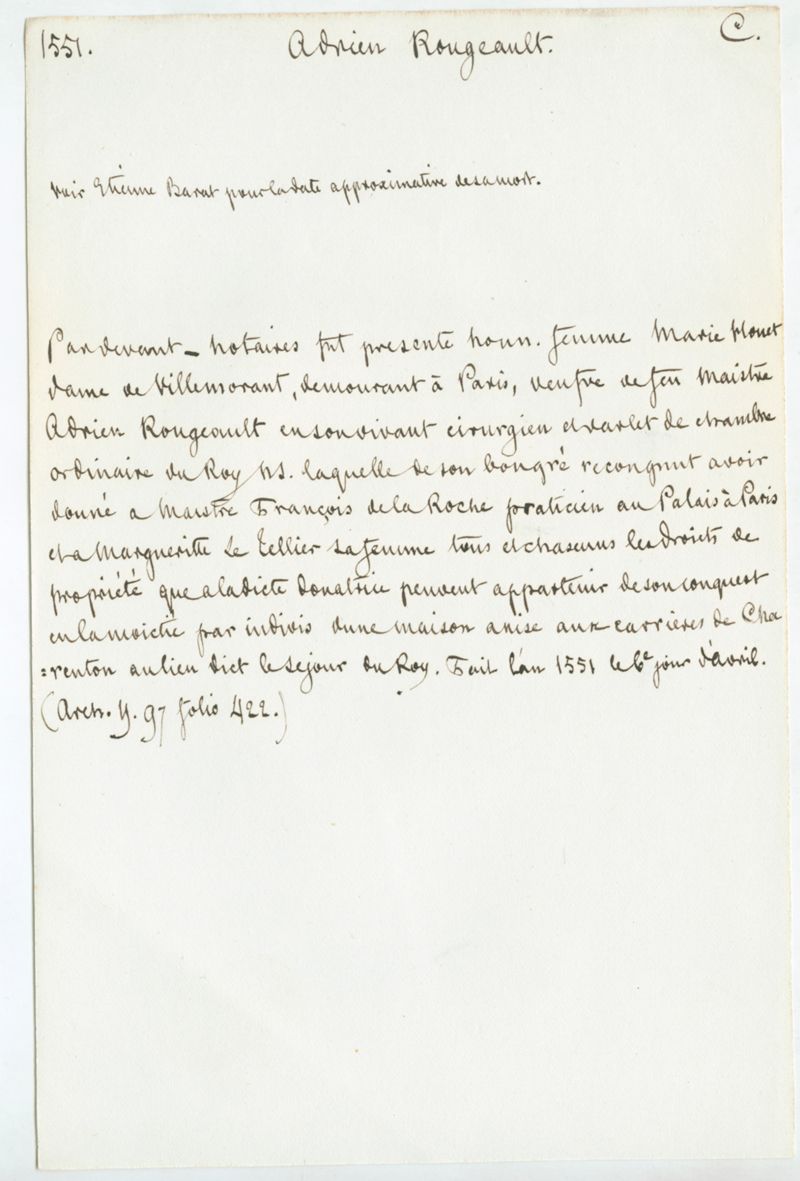 1551. Adrien Rougeault. C.
Voir Etienne Barat pour la date approximative de sa mort.
Par devant _ notaires fut presente honn. femme Marie
dame de Villemorant, demourant à Paris, veufve de feu Maistre
Adrien Rougeault en son vivant cirurgien et varlet de chambre
ordinaire du Roy NS. laquelle de son bon gré recongnut avoir
donné a Maistre François de la Roche praticien au Palais à Paris
et a Margueritte Le Tellier sa femme tous et chascuns les droicts de
propriété que a ladicte donatrice peuvent appartenir de son conquest
en la moictié par indivis dune maison assise aux carrières de Cha
=renton au lieu dict le Sejour du Roy. Fait l'an 1551 le 6e jour d'avril.
(Arch. Y. 97 folio 422.)